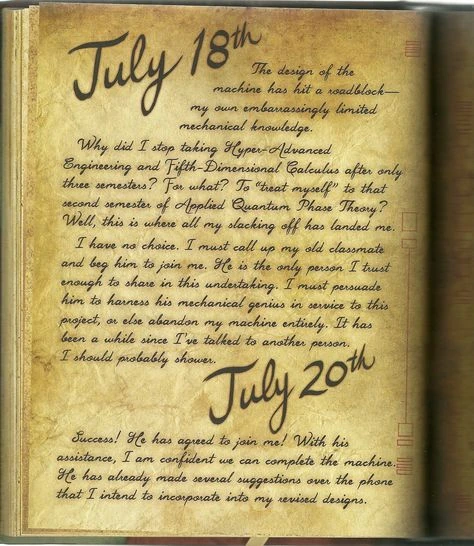 July 18th
The design of the
machine has hit a roadblock—
my own embarrassingly limited
mechanical knowledge.
Why did I stop taking Hyper-Advanced
Engineering and Fifth-Dimensional Calculus after only
three semesters? For what? To "treat myself" to that
second semester of Applied Quantum Phase Theory?
Well, this is where all my slacking off has landed me.
I have no choice. I must call up my old classmate
and beg him to join me. He is the only person I trust
enough to share in this undertaking. I must persuade
him to harness his mechanical genius in service to this
project, or else abandon my machine entirely. It has
been a while since I've talked to another person.
I should probably shower.
July 20th
Success! He has agreed to join me! With his
assistance, I am confident we can complete the machine.
He has already made several suggestions over the phone
that I intend to incorporate into my revised designs.